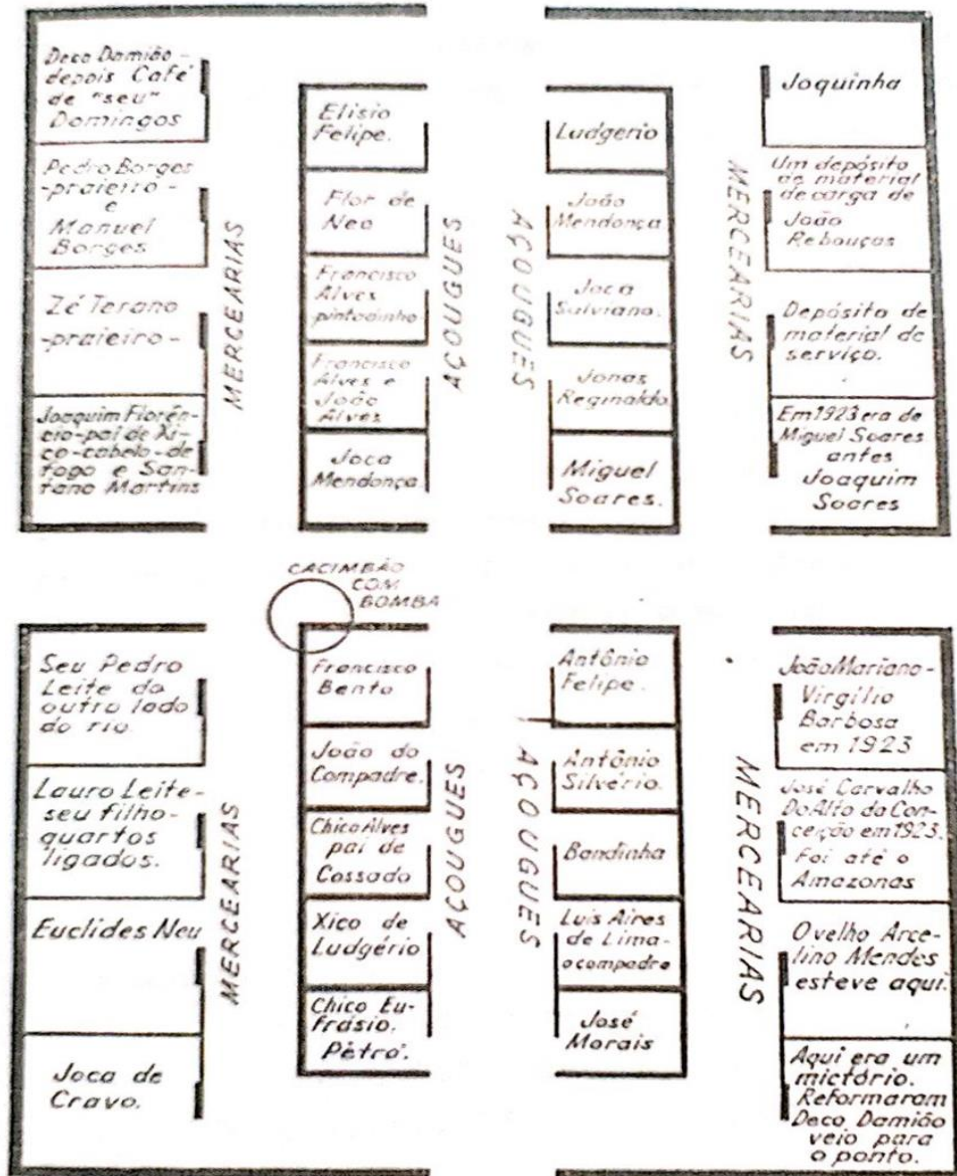 Deco Damião -
depois Café
de "seu"
Domingos
Pedro Borges
-praieiro-
e
Manuel
Borges
Zé Terano
-praieiro-
Joaquim Florên-
cio-pai de Xi-
co-cabelo-de
fogo e San-
tano Martins
MERCEARIAS
Elisio
Felipe.
Flor de
Neo
Francisco
Alves
pintadinho
Francisco
Alves e
João
Alves
Joca
Mendonça
AÇOUGUES
AÇOUGUES
Ludgerio
João
Mendonça
Joca
Salviano.
Jonas
Reginaldo.
Miguel
Soares.
MERCEARIAS
Joquinha
Um depósito
de material
de carga de
João
Rebouças
Depósito de
material de
serviço.
Em 1923 era de
Miguel Soares
antes
Joaquim
Soares
CACIMBÃO
COM
BOMBA
Seu Pedro
Leite do
outro lado
do rio.
Lauro Leite-
seu filho-
quartos
ligados.
Euclides Neu
Joca de
Cravo.
MERCEARIAS
Francisco
Bento
João do
Compadre.
Chico Alves
pai de
Cossado
Xico de
Ludgério
Chico Eu-
frásio.
Pêtro.
AÇOUGUES
AÇOUGUES
Antônio
Felipe.
Antônio
Silvério.
Bandinha
Luis Aires
de Lima-
o compadre
José
Morais
MERCEARIAS
João Mariano-
Virgílio
Barbosa
em 1923
José Carvalho
Do Alto da Con-
ceição em 1923.
Foi até o
Amazonas
O velho Arce-
lino Mendes
esteve aqui.
Aqui era um
mictório.
Reformaram
Deco Damião
veio para
o ponto.